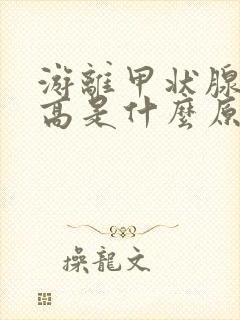 游離甲狀腺
高是什麼原
操龍文